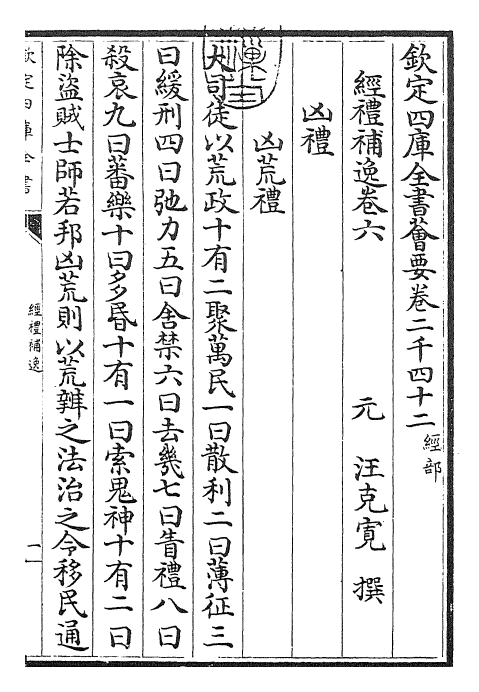 欽定四庫全書薈要卷二千四十二 經部
經禮補逸卷六 元 汪克寛 撰
凶禮
凶荒禮
大司徒以荒政十有二聚萬民一曰散利二曰薄征三
曰緩刑四曰弛力五曰舍禁六曰去幾七曰眚禮八曰
殺哀九曰蕃樂十曰多昏十有一曰索鬼神十有二曰
除盜賊士師若邦凶荒則以荒辯之法治之令移民通
欽定四庫全書
經禮補逸
一